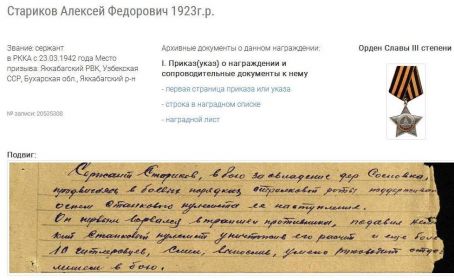 Стариков Алексей Федорович 1923г.р.
Звание: сержант
в РККА с 23.03.1942 года Место
призыва: Яккабагский РВК, Узбекская
ССР, Бухарская обл., Яккабагский р-н
№ записи: 20505308
Архивные документы о данном награждении:
I. Приказ(указ) о награждении и
сопроводительные документы к нему
- первая страница приказа или указа
- строка в наградном списке
- наградной лист
Орден Славы III степени
Подвиг:
Сержант Стариков, в бою за овладение дер Сосновка,
продвигаясь в боевых порядках стрелковой роты поддерживал
огнем станкового пулемета ее наступление.
Он первым ворвался в траншеи противника, подавил
станковый пулемет уничтожив его расчет и еще
10 гитлеровцев. Смел, умело руководит
в бою.